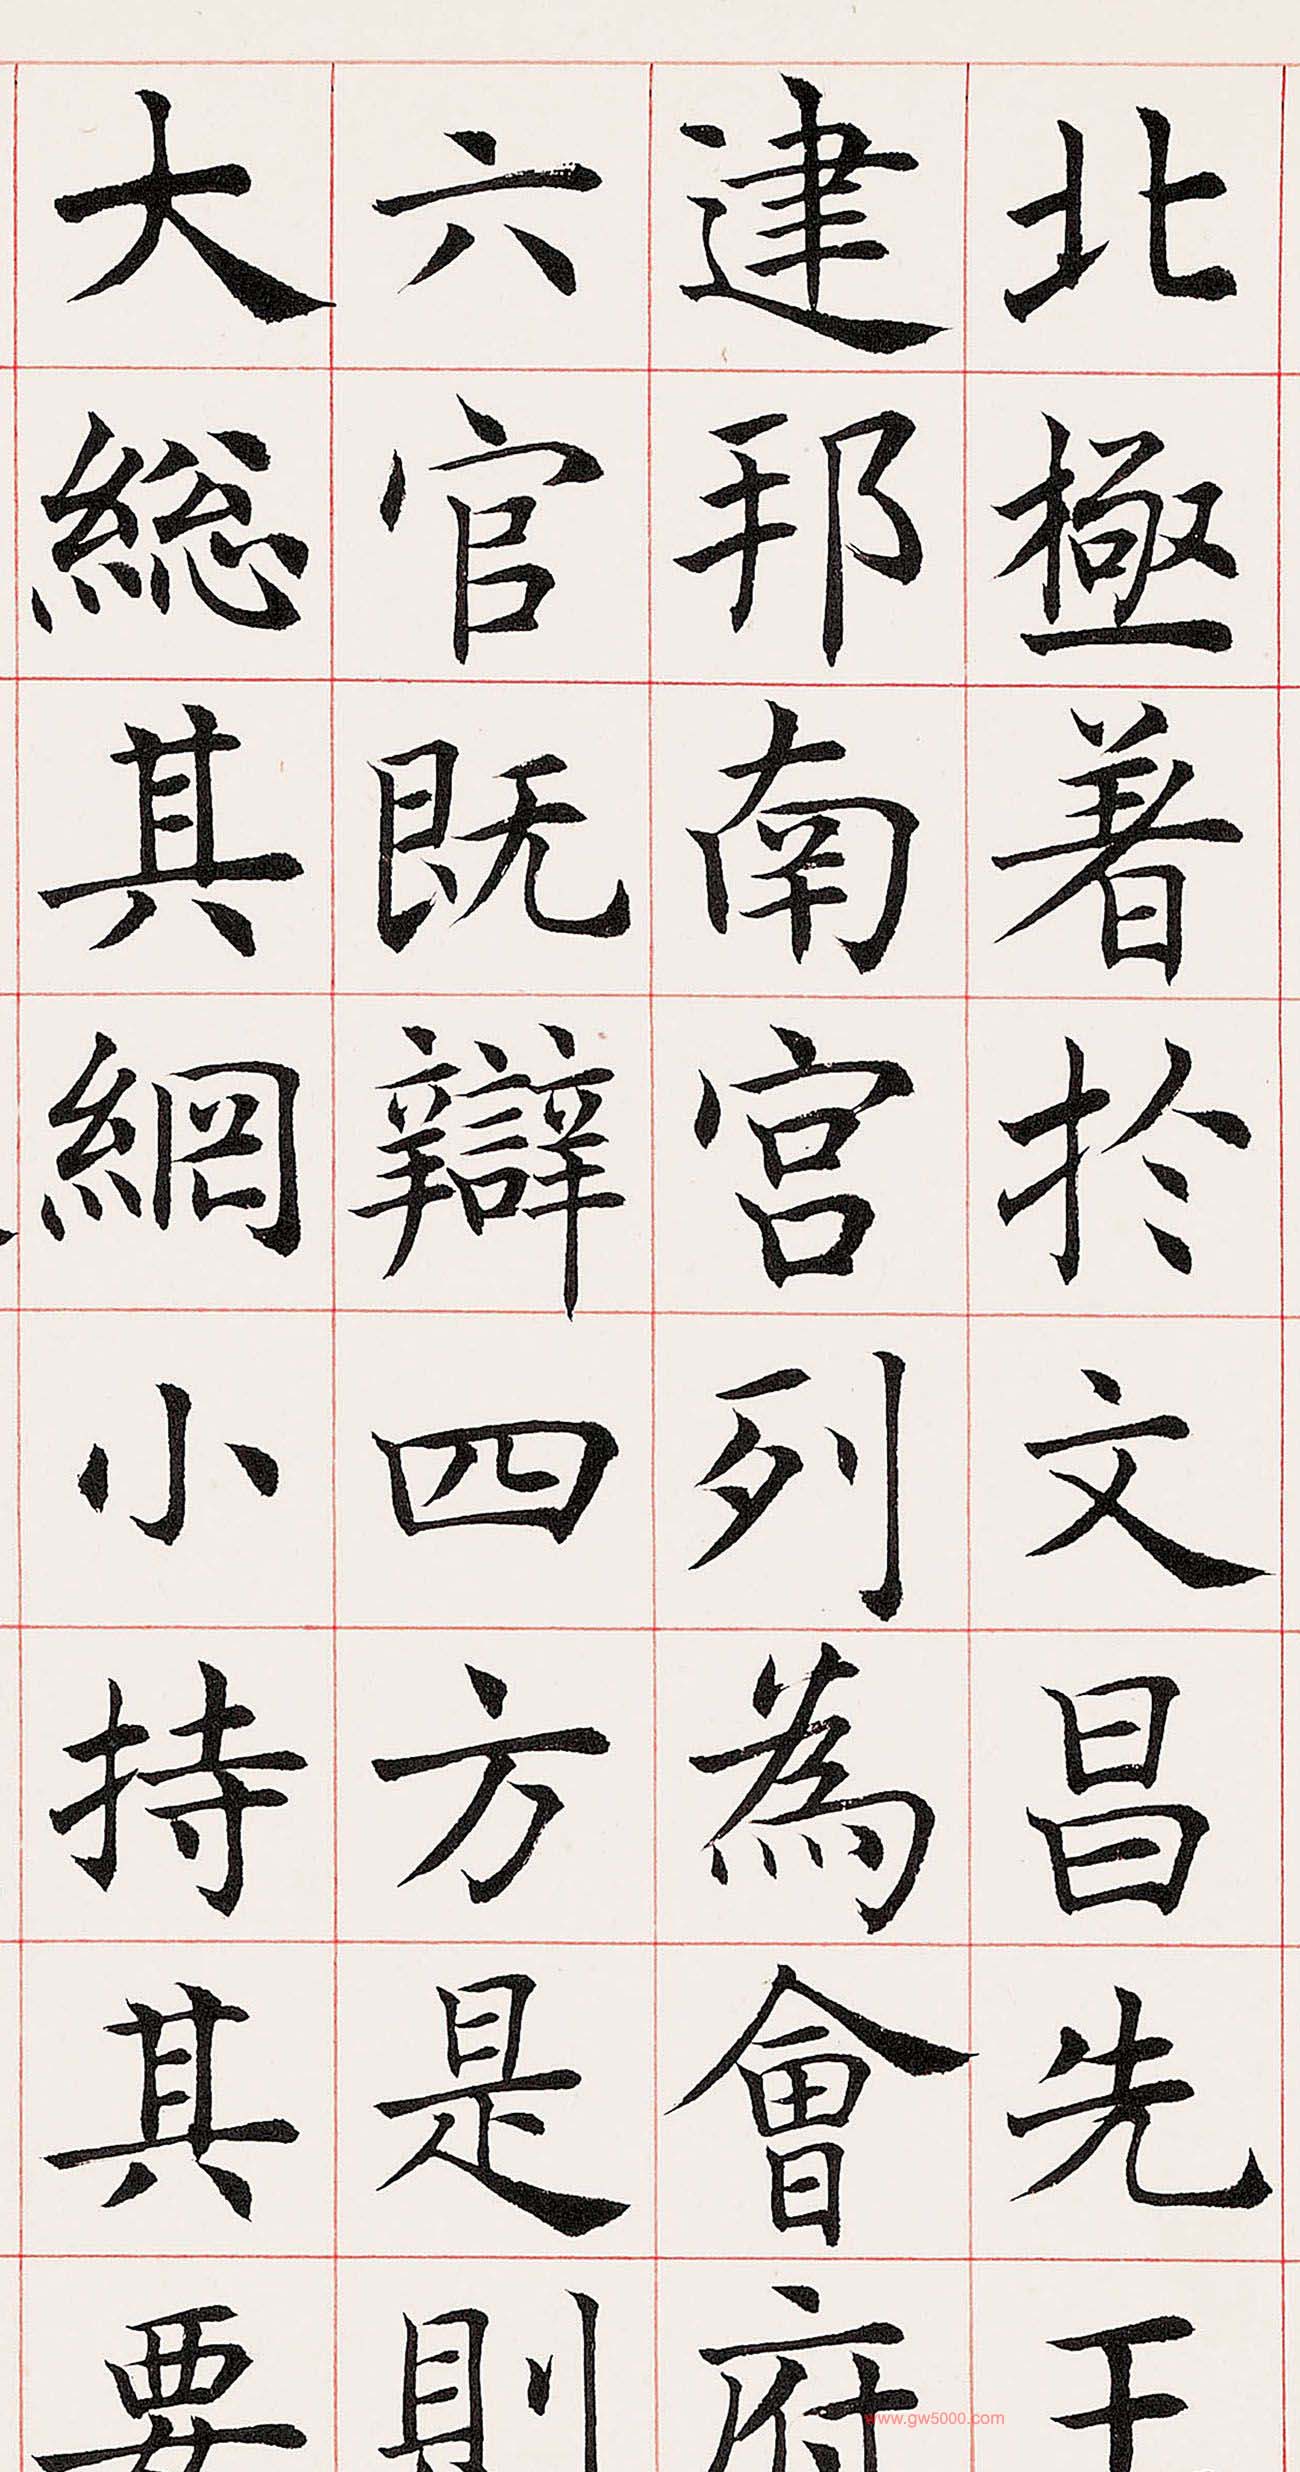 北極著於文昌先王
建邦南宮列為會府
六官既辯四方是則
大総其綱小持其要
www.gw5000.com